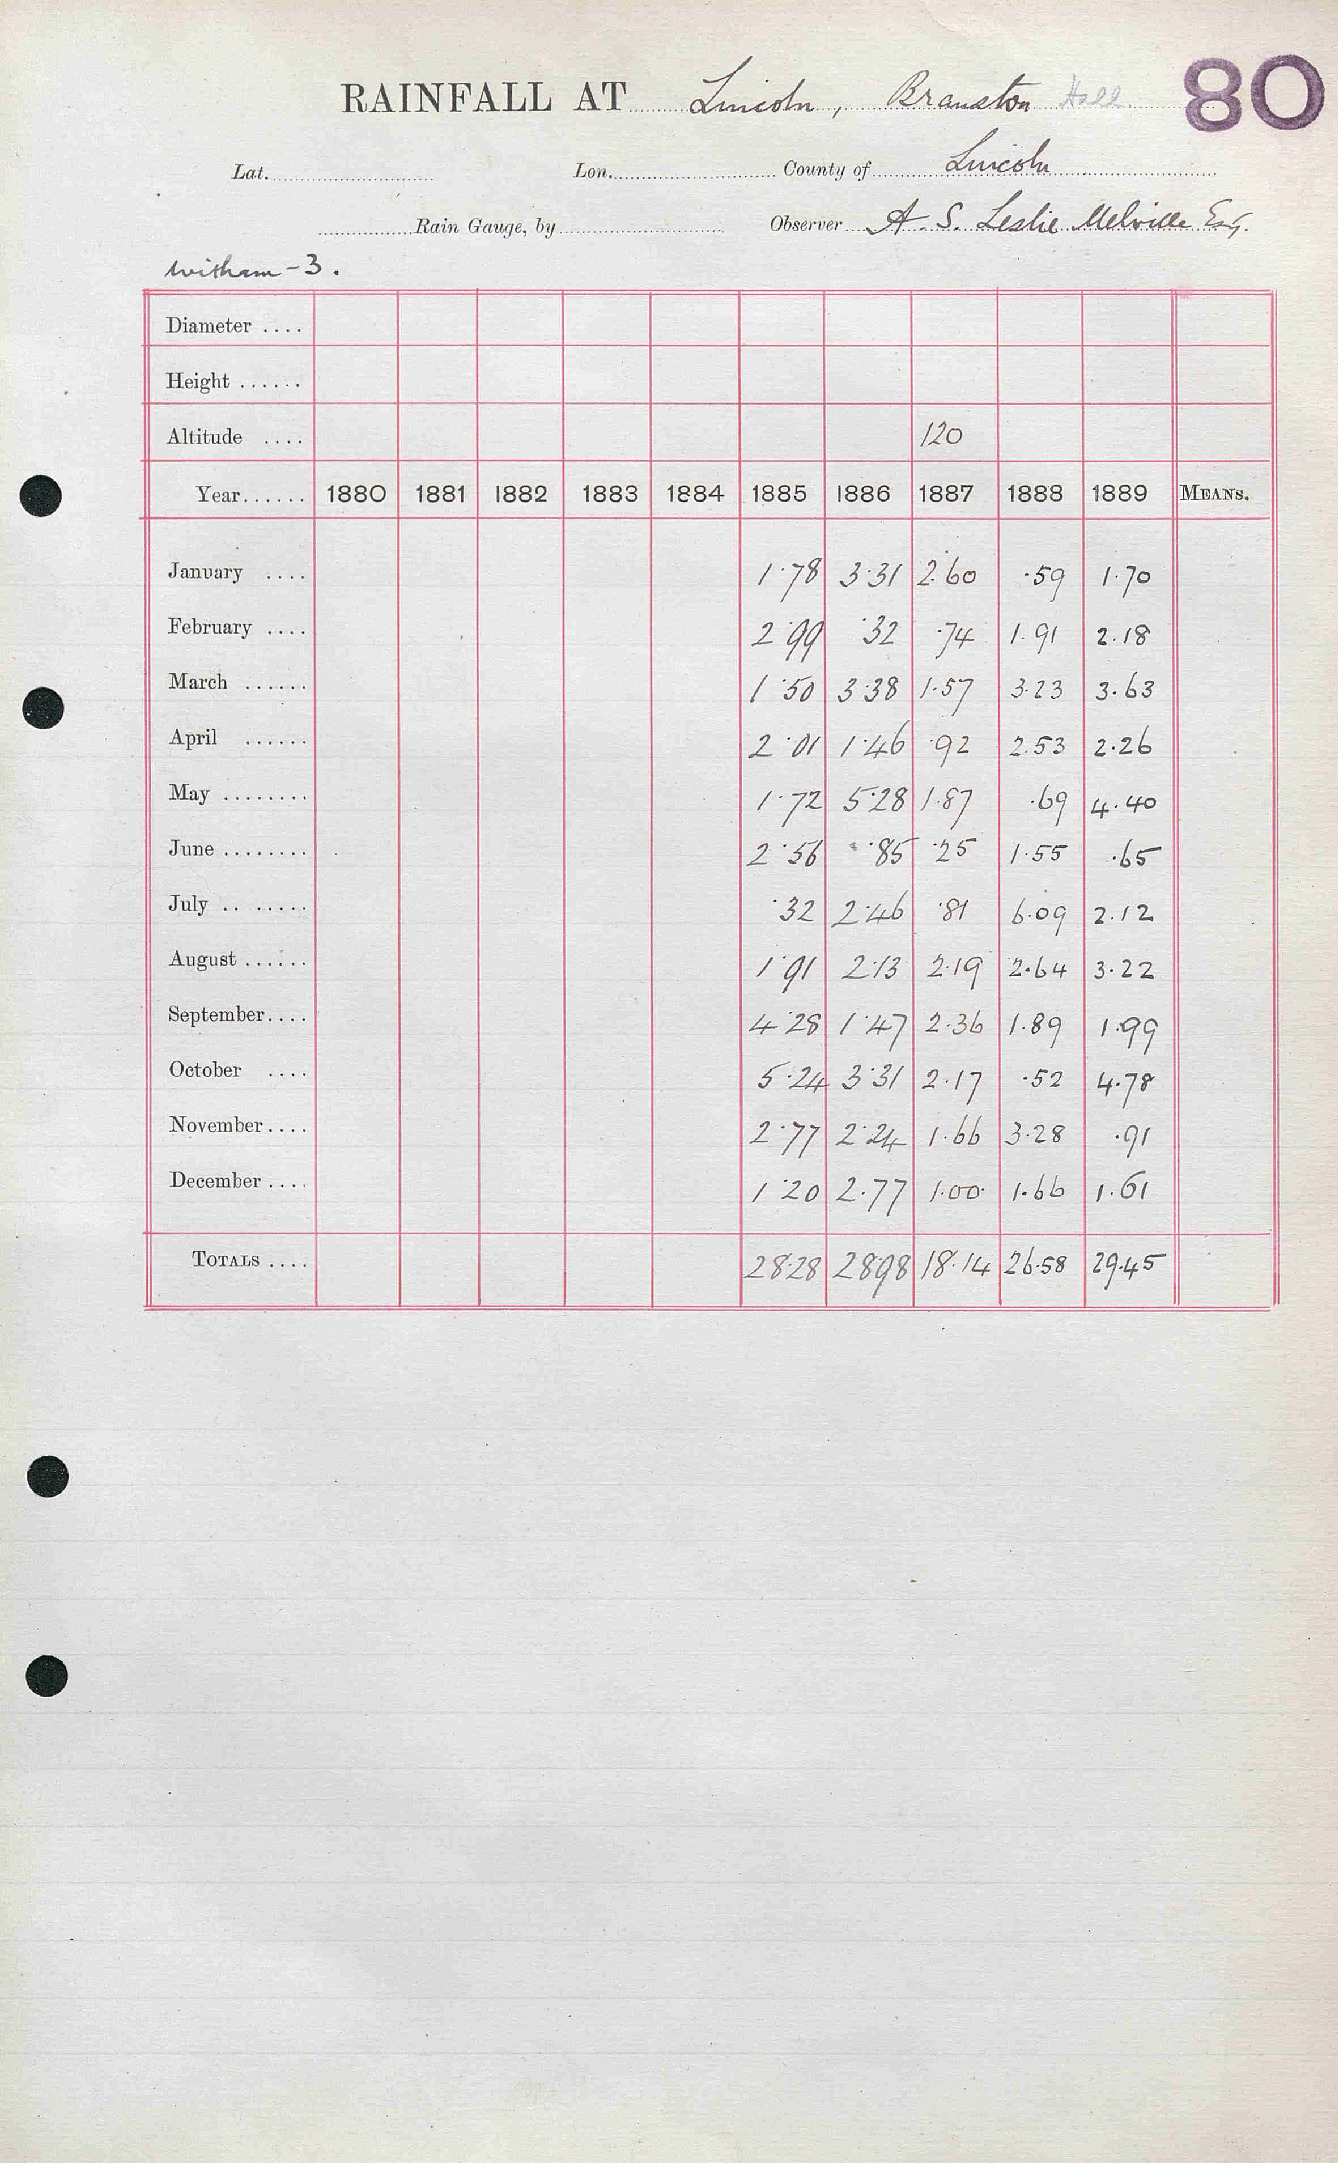 RAINFALL AT Lincoln, Branston Hall. 80
Lat. Lon. County of Lincoln
Rain Gauge, by Observer A. S. Leslie Melville Esq.
Witham - 3.
Diameter ....
Height ......
Altitude .... 120
Year...... 1880 1881 1882 1883 1884 1885 1886 1887 1888 1889 MEANS.
January .... 1.78 3.31 2.60 .59 1.70
February .... 2.99 .32 .74 1.91 2.18
March ...... 1.50 3.38 1.57 3.23 3.63
April ...... 2.01 1.46 .92 2.53 2.26
May ........ 1.72 5.28 1.87 .69 4.40
June ........ 2.56 .85 .25 1.55 .65
July .. ...... .32 2.46 .81 6.09 2.12
August ...... 1.91 2.13 2.19 2.64 3.22
September.... 4.28 1.47 2.36 1.89 1.99
October .... 5.24 3.31 2.17 .52 4.78
November.... 2.77 2.24 1.66 3.28 .91
December .... 1.20 2.77 1.00 1.66 1.61
TOTALS .... 28.28 28.98 18.14 26.58 29.45